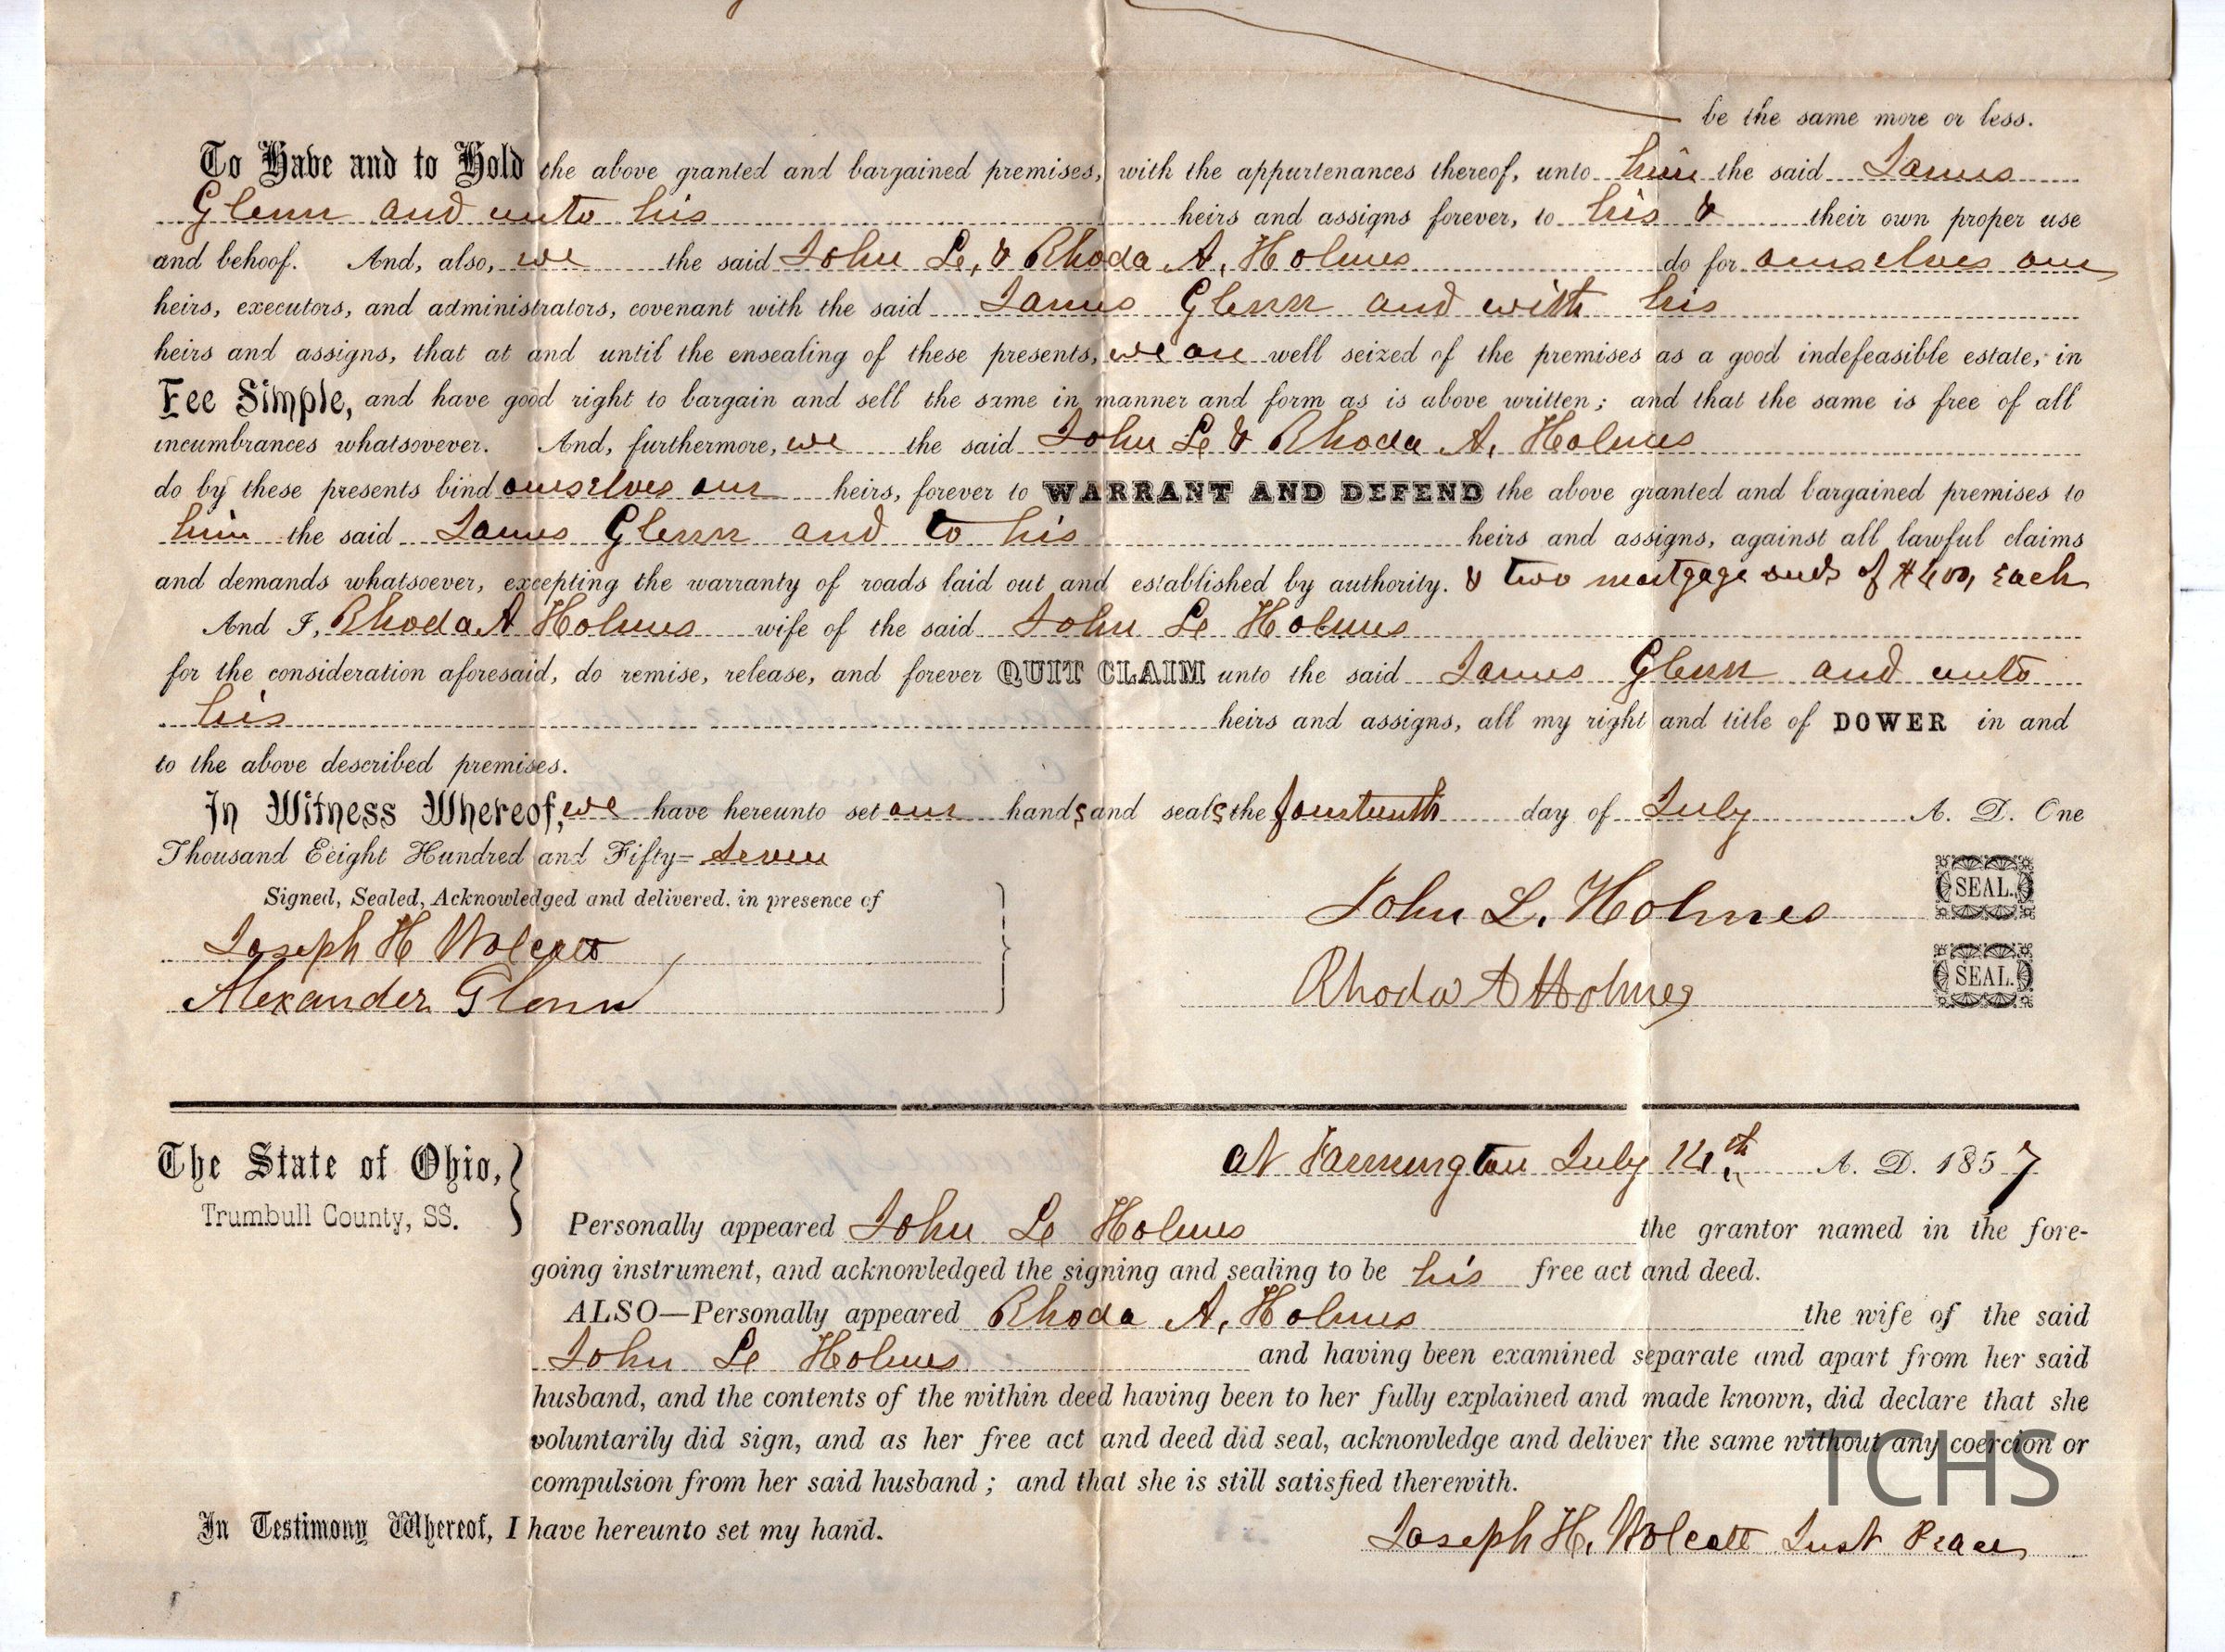 be the same more or less.
To Have and to Hold the above granted and bargained premises, with the appurtenances thereof, unto him the said James
Glenn and unto his heirs and assigns forever, to his & their own proper use
and behoof. And, also, we the said John L, & Rhoda A, Holmes do for ourselves our
heirs, executors, and administrators, covenant with the said James Glenn and with his
heirs and assigns, that at and until the ensealing of these presents, we are well seized of the premises as a good indefeasible estate, in
Fee Simple, and have good right to bargain and sell the same in manner and form as is above written; and that the same is free of all
incumbrances whatsovever. And, furthermore, we the said John L & Rhoda A, Holmes
do by these presents bind ourselves our heirs, forever to WARRANT AND DEFEND the above granted and bargained premises to
him the said James Glenn and to his heirs and assigns, against all lawful claims
and demands whatsoever, excepting the warranty of roads laid out and established by authority. & two mortgage of each
And I, Rhoda A Holmes wife of the said John L Holmes
for the consideration aforesaid, do remise, release, and forever QUIT CLAIM unto the said James Glenn and unto
his heirs and assigns, all my right and title of DOWER in and
to the above described premises.
In Witness Whereof, we have hereunto set our hands and seals the fourteenth day of July A. D. One
Thousand Eeight Hundred and Fifty=Seven
Signed, Sealed, Acknowledged and delivered, in presence of
John L. Holmes SEAL.
Joseph H Wolcott
Rhoda A Holmes SEAL.
Alexander Glenn
The State of Ohio,
Trumbull County, SS.
At Farmington July 14th A. D. 1857
Personally appeared John L Holmes the grantor named in the fore-
going instrument, and acknowledged the signing and sealing to be his free act and deed.
ALSO—Personally appeared Rhoda A, Holmes the wife of the said
John L Holmes and having been examined separate and apart from her said
husband, and the contents of the within deed having been to her fully explained and made known, did declare that she
voluntarily did sign, and as her free act and deed did seal, acknowledge and deliver the same without any coercion or
compulsion from her said husband; and that she is still satisfied therewith.
TCHS
In Testimony Whereof, I have hereunto set my hand.
Joseph H. Wolcott Just Peace